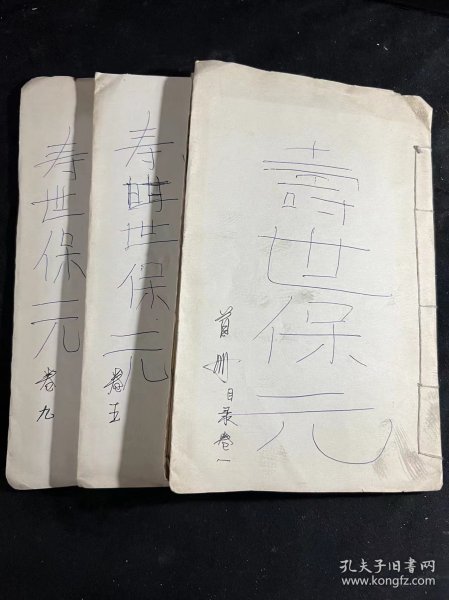 壽世保元
首册目录卷一
寿世保元
卷五
寿世保元
卷九
孔夫子旧书网
www.kongfz.com